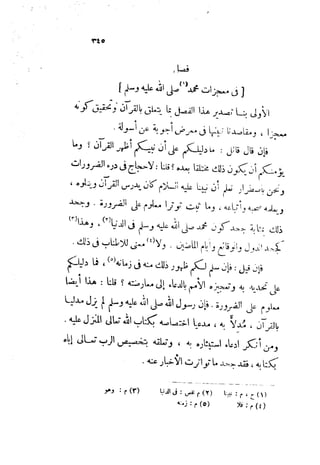 ٣٤٥
فصل
[ فى معجزات محمد(١) صلى الله عليه وسلم ]
الأولى بنا تصدير هذا الفصل بما يتعلق بالقرآن وتحقيق كونه
معجزا ، ومقاصدنا نبينها فى معرض أجوبة عن أسولة .
فإن قال قائل : ما دليلكم على أن نبيكم أظهر القرآن ؟ وما
يؤمنكم أن يكون ذلك مختلقا بعده ؟ قلنا : لا حجاج فى درء الضرورات
ونحن باضطرار نعلم أن نبينا عليه السلام كان يدرس القرآن ويتلوه ،
ويعلمه صحبه وأتباعه ، وما ثبت تواترا معلوم على الضرورة . وجحد
ذلك بمثابة جحد كون محمد صلى الله عليه وسلم فى الدنيا(٢) ، وهذا(٣)
كجحد الدول والوقائع وأيام الماضين . ولا(٤) معنى للإطناب فى ذلك .
فإن قيل : فإن سلم لكم ظهور ذلك منه فى زمانه(٥) ، فما دليلكم
على تحديه به وتعجيزه الأمم بالدعاء إلى معارضته ؟ قلنا : هذا أيضا
معلوم على الضرورة . فإن رسول الله صلى الله عليه وسلم لم يزل مدليا
بالقرآن ، مُدِلاًّ به ، مدعيا اختصاصه بكتاب الله تعالى المنزل عليه .
ومن أنكر ادعاء استيثاره به ، وتعلقه بتخصيص الرب تعالى إياه
بكتابه ، فقد جحد ما تواترت الأخبار عنه .
(١) ح ، م : نبينا (٢) م نقص : فى الدنيا (٣) م : وهو
(٤) م : فلا (٥) م : زمنه